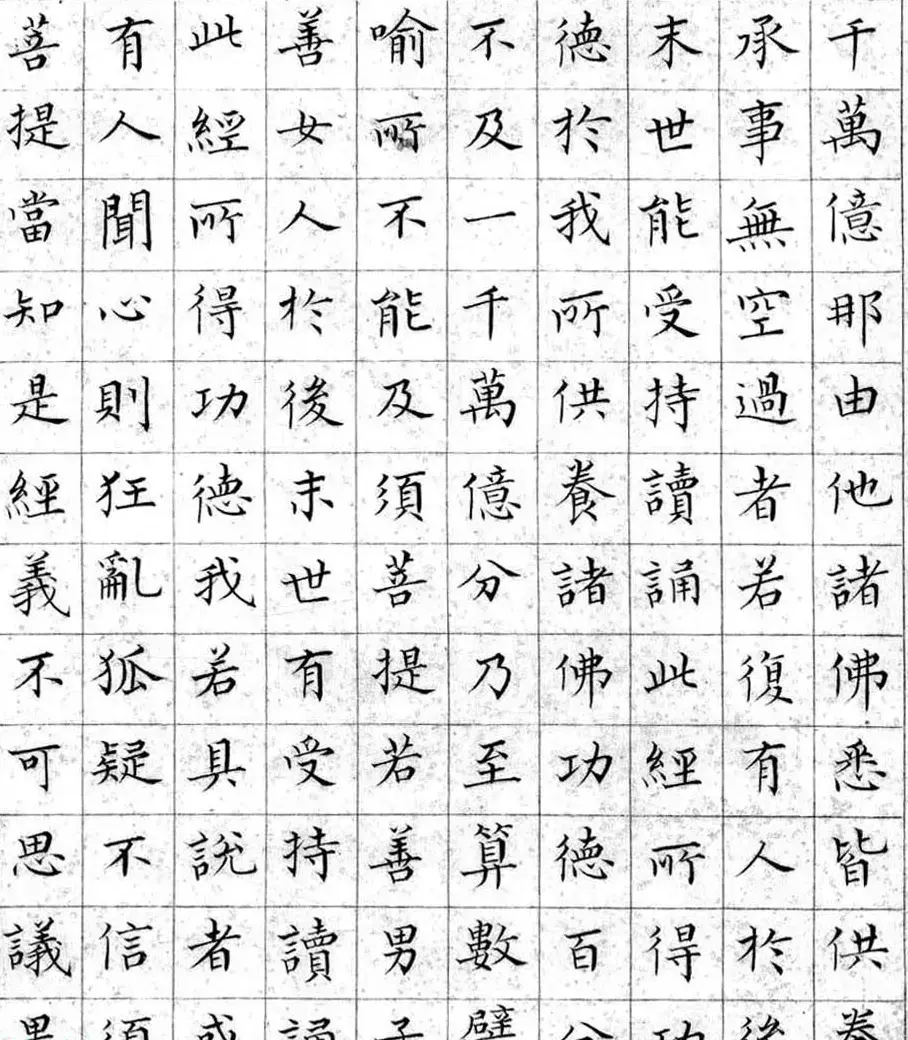 千萬億那由他諸佛悉皆供養
承事無空過者若復有人於後
末世能受持讀誦此經所得功
德於我所供養諸佛功德百分
不及一千萬億分乃至算數譬
喻所不能及須菩提若善男子
善女人於後末世有受持讀誦
此經所得功德我若具說者或
有人聞心則狂亂狐疑不信須
菩提當知是經義不可思議果